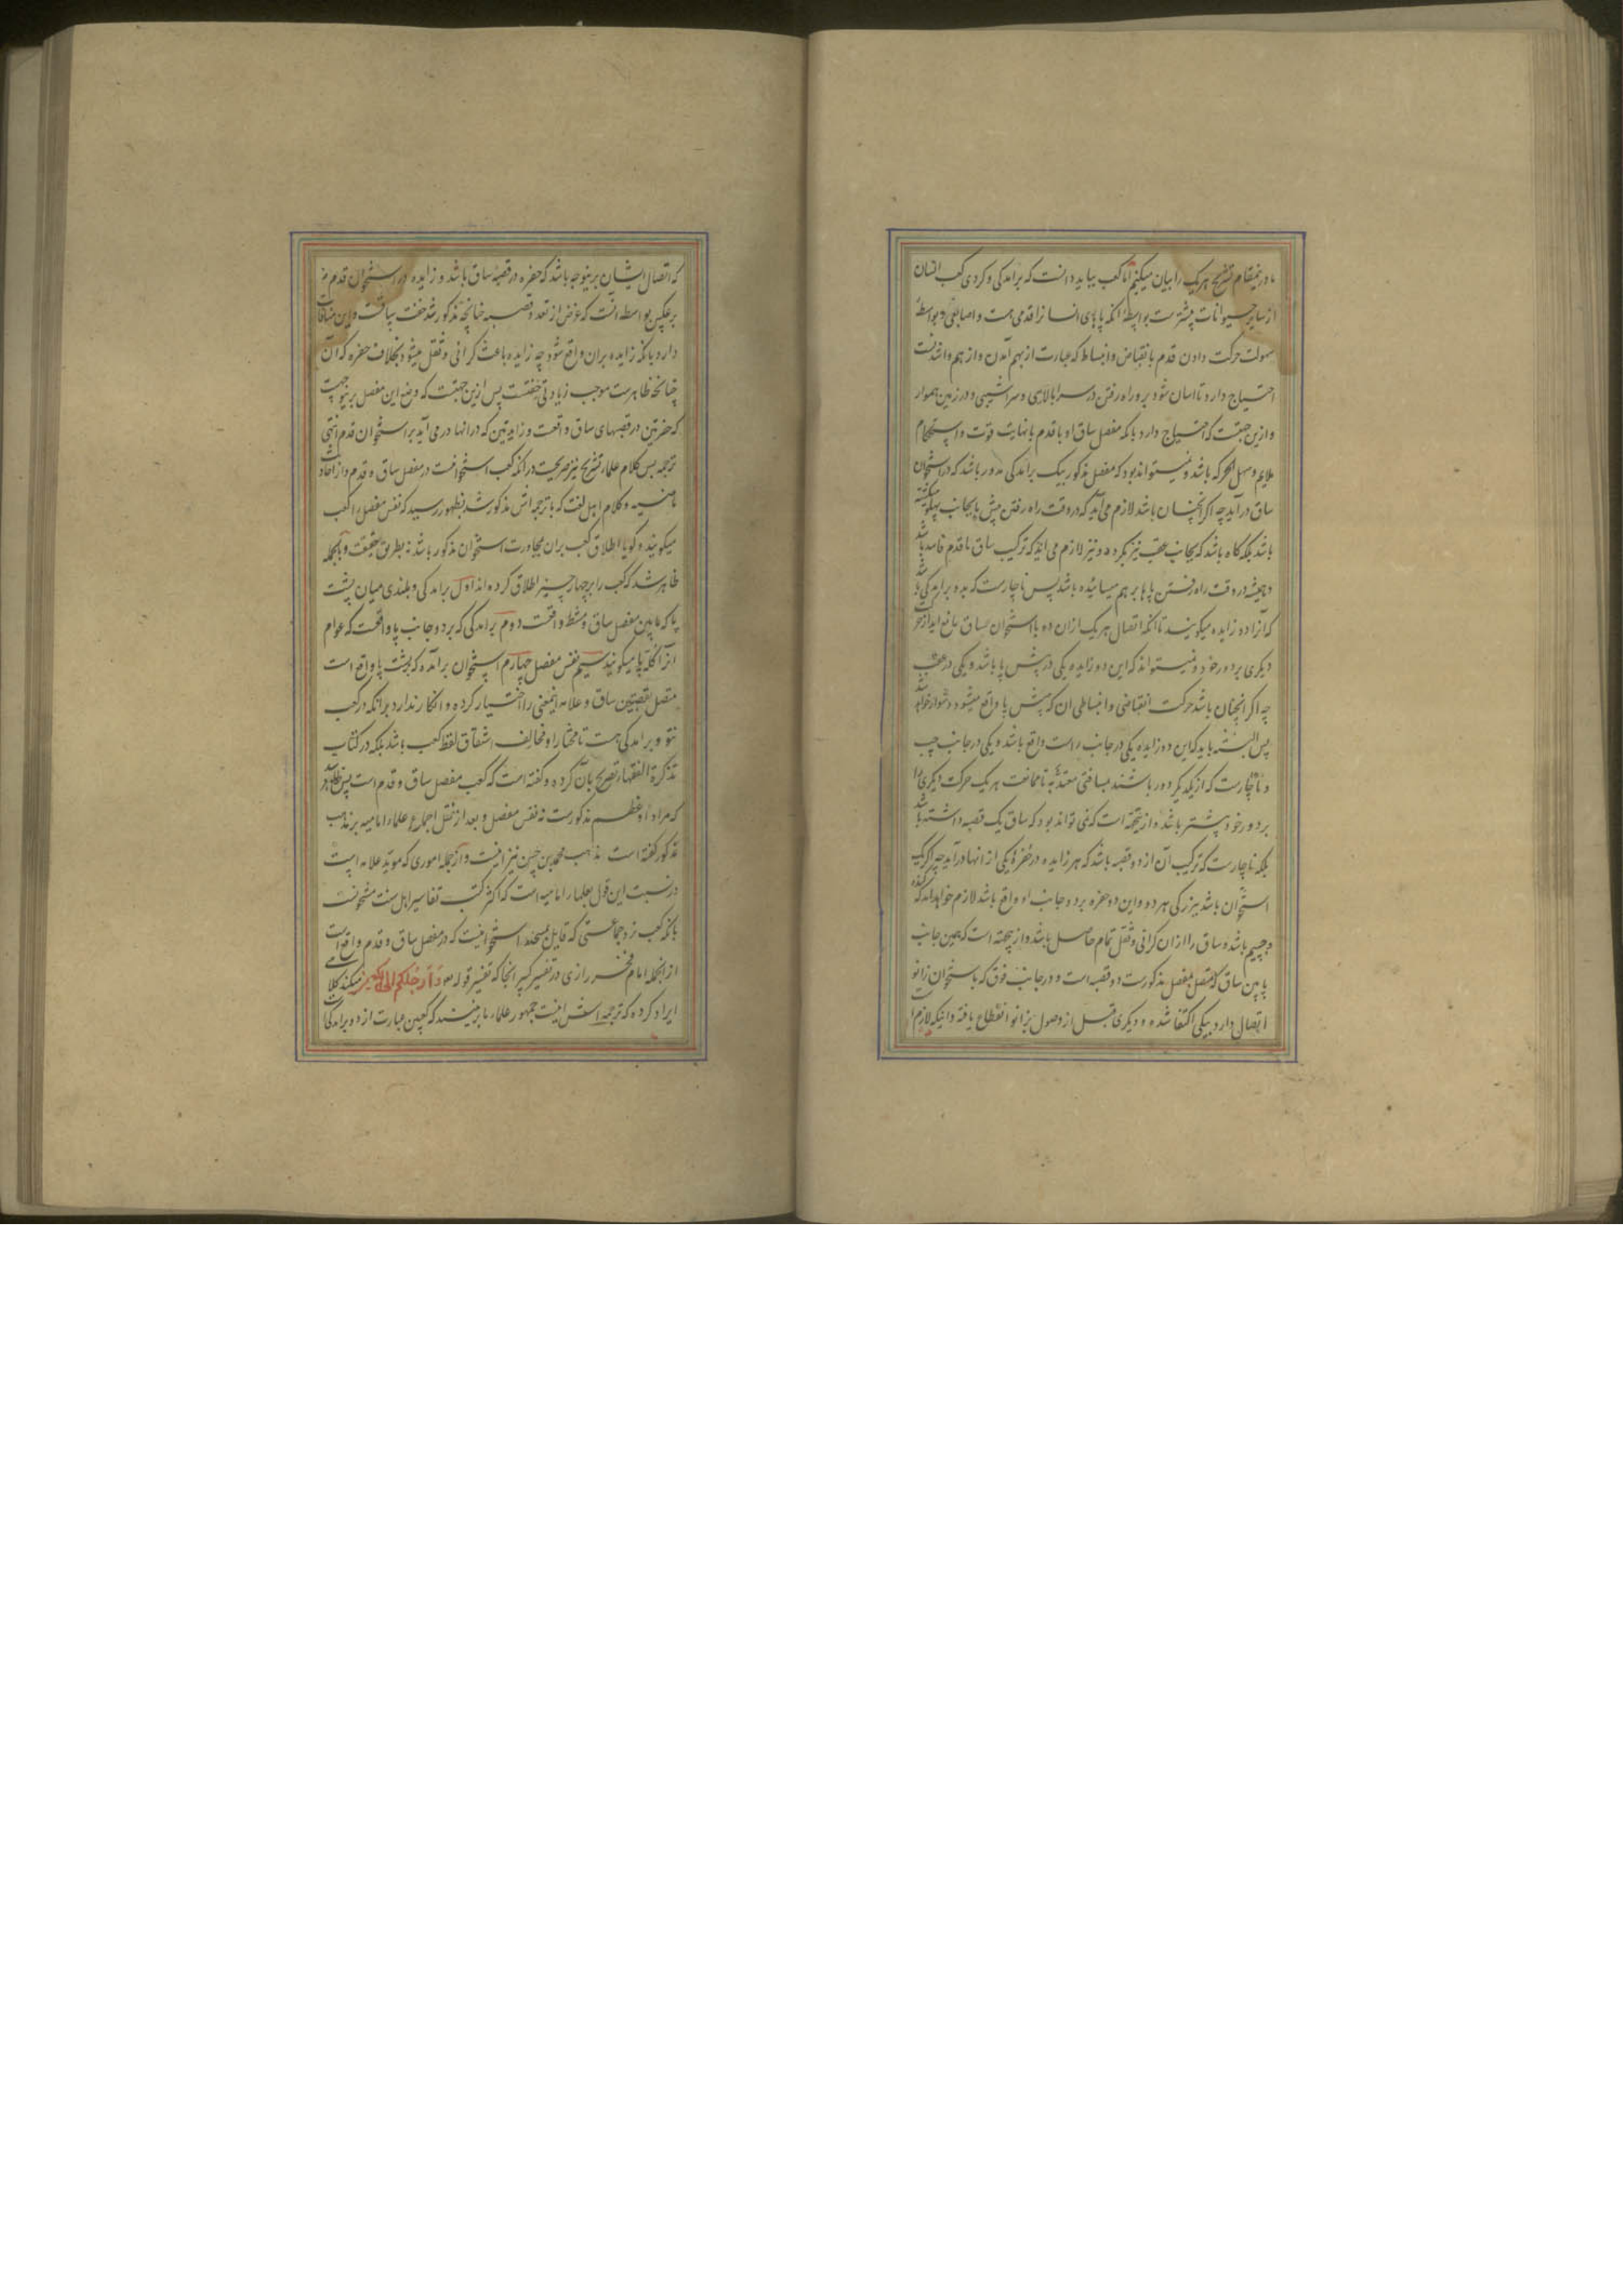 ما درینمقام تشریح هریک را بیان میکنیم اما کعب بباید دانست که برامدکی و کردی کعب انسان
از سایر حیوانات پیشترست بواسطهٔ انکه پاهای انسانرا قدمی هست و اصابعی و بواسطهٔ
سهولت حرکت دادن قدم بانقباض و انبساط که عبارت از بهم آمدن و از هم واشدنست
احتیاج دارد تا اسان شود برو راه رفتن در سرابالایی و سراشیبی و در زمین هموار
و ازین جهتست که احتیاج دارد بانکه مفصل ساق او با قدم بانهایت قوّت و استحکام
ملایم و سهل الحرکه باشد و نمیتواند بود که مفصل مذکور بیک برامدکی مدور باشد که در استخوان
ساق درآید چه اکر انچنان باشد لازم می‌آید که در وقت راه رفتن پیش پا بجانب پهلو
باشد بلکه کاه باشد که بجانب عقب نیز بکردد و نیز لازم می اید که ترکیب ساق با قدم فاسد باشد
و همیشه در وقت راه رفتن پاها بر هم میسائیده باشد پس ناچارست که بدو برامدکی باشد
که آنرا دو زایده میکویند تا انکه اتصال هریک ازان دو با استخوان ساق مانع اید از حرکت
دیکری بر دور خود و نمیتواند که این دو زایده یکی در پیش پا باشد و یکی در عقب
چه اکر انچنان باشد حرکت انقباضی و انبساطی ان که پیش پا واقع میشود دشوار خواهد
پس البته باید که این دو زایده یکی در جانب راست واقع باشد و یکی در جانب چپ
و ناچارست که از یکدیکر دور باشند بمسافتی معتدٌّ به تا ممانعت هریک حرکت دیکری را
بر دور خود بیشتر باشد و ازینجهة است که نمی تواند بود که ساق یک قصبه داشته باشد
بلکه ناچارست که ترکیب آن از دو قصبه باشد که هر زایده در حفرهٔ یکی از انها درآید چه اکر یک
استخوان باشد ببزرکی هر دو و این دو حفره بر دو جانب او واقع باشد لازم خواهد آمد که
و جسیم باشد و ساق را ازان کرانی و ثقل تمام حاصل باشد و ازینجهة است که همین جانب
پایین ساق که متصل بمفصل مذکورست دو قصبه است و در جانب فوق که باستخوان زانو
اتصال دارد بیکی اکتفا شده و دیکری قبل از وصول بزانو انقطاع یافته و اینکه لازم است
که اتصال ایشان برینوجه باشد که حفره در قصبهٔ ساق باشد و زایده در استخوان قدم نه
بر عکس بواسطه انست که غرض از تعدد قصبه چنانچه مذکور شد خفت ساقست و این منافات
دارد بانکه زایده بران واقع شود چه زایده باعث کرانی و ثقل میشود بخلاف حفره که آن
چنانچه ظاهرست موجب زیادتی خفتست پس ازین جهتست که وضع این مفصل برینوجهست
که حفرتین در قصبهای ساق واقعست و زایدتین که درانها درمی آید بر استخوان قدم انتهی
ترجمه پس کلام علماء تشریح نیز صریحست درانکه کعب استخوانیست در مفصل ساق و قدم و از احادیث
ماضیه و کلام اهل لغت که با ترجمه‌اش مذکور شد بظهور رسید که نفس مفصل را کعب
میکویند و کویا اطلاق کعب بران بمجاورت استخوان مذکور باشد نه بطریق حقیقت و بالجمله
ظاهر شد که کعب را بر چهار چیز اطلاق کرده اند اول برامدکی و بلندی میان پشت
پا که مابین مفصل ساق و مشط واقعست دوم برآمدکی که بر دو جانب پا واقعست که عوام
انرا کلهٔ پا میکویند سیم نفس مفصل چهارم استخوان برآمده که بر پشت پا واقع است
متصل بقصبتین ساق و علامه اینمعنی را اختیار کرده و انکار ندارد برانکه در کعب
نتو و برامدکی هست تا مختار او مخالف اشتقاق لفظ کعب باشد بلکه در کتاب
تذکرة الفقهاء تصریح بآن کرده و کفته است که کعب مفصل ساق و قدم است پس ظاهر شد
که مراد او عظم مذکورست نه نفس مفصل و بعد از نقل اجماع علماء امامیه بر مذهب
مذکور کفته است مذهب محمد بن حسن نیز اینست و از جمله اموری که موید علامه است
در نسبت این قول بعلماء امامیه است که اکثر کتب تفاسیر اهل سنت مشحونست
بانکه کعب نزد جماعتی که قایل بمسحند استخوانیست که در مفصل ساق و قدم واقع است
از انجمله امام فخر رازی در تفسیر کبیر انجا که تفسیر قوله تعالی وَاَرجُلَکُم اِلَی الکَعبَین میکند کلامی
ایراد کرده که ترجمه اش اینست جمهور علماء ما برینند که کعبین عبارت از دو برامدکی است